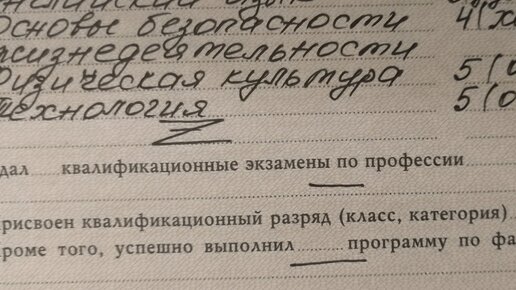 английский язык
Основы безопасности 4 (х
жизнедеятельности
Физическая культура 5 (о
Технология 5 (о
дал квалификационные экзамены по профессии
присвоен квалификационный разряд (класс, категория)
кроме того, успешно выполнил программу по фа